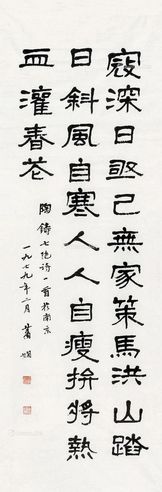 寇深日亟已無家策馬洪山踏
日斜風自寒人人自瘦拚將熱
血灌春花
陶鑄七绝诗一首於南京
一九七九年二月 蕭嫻